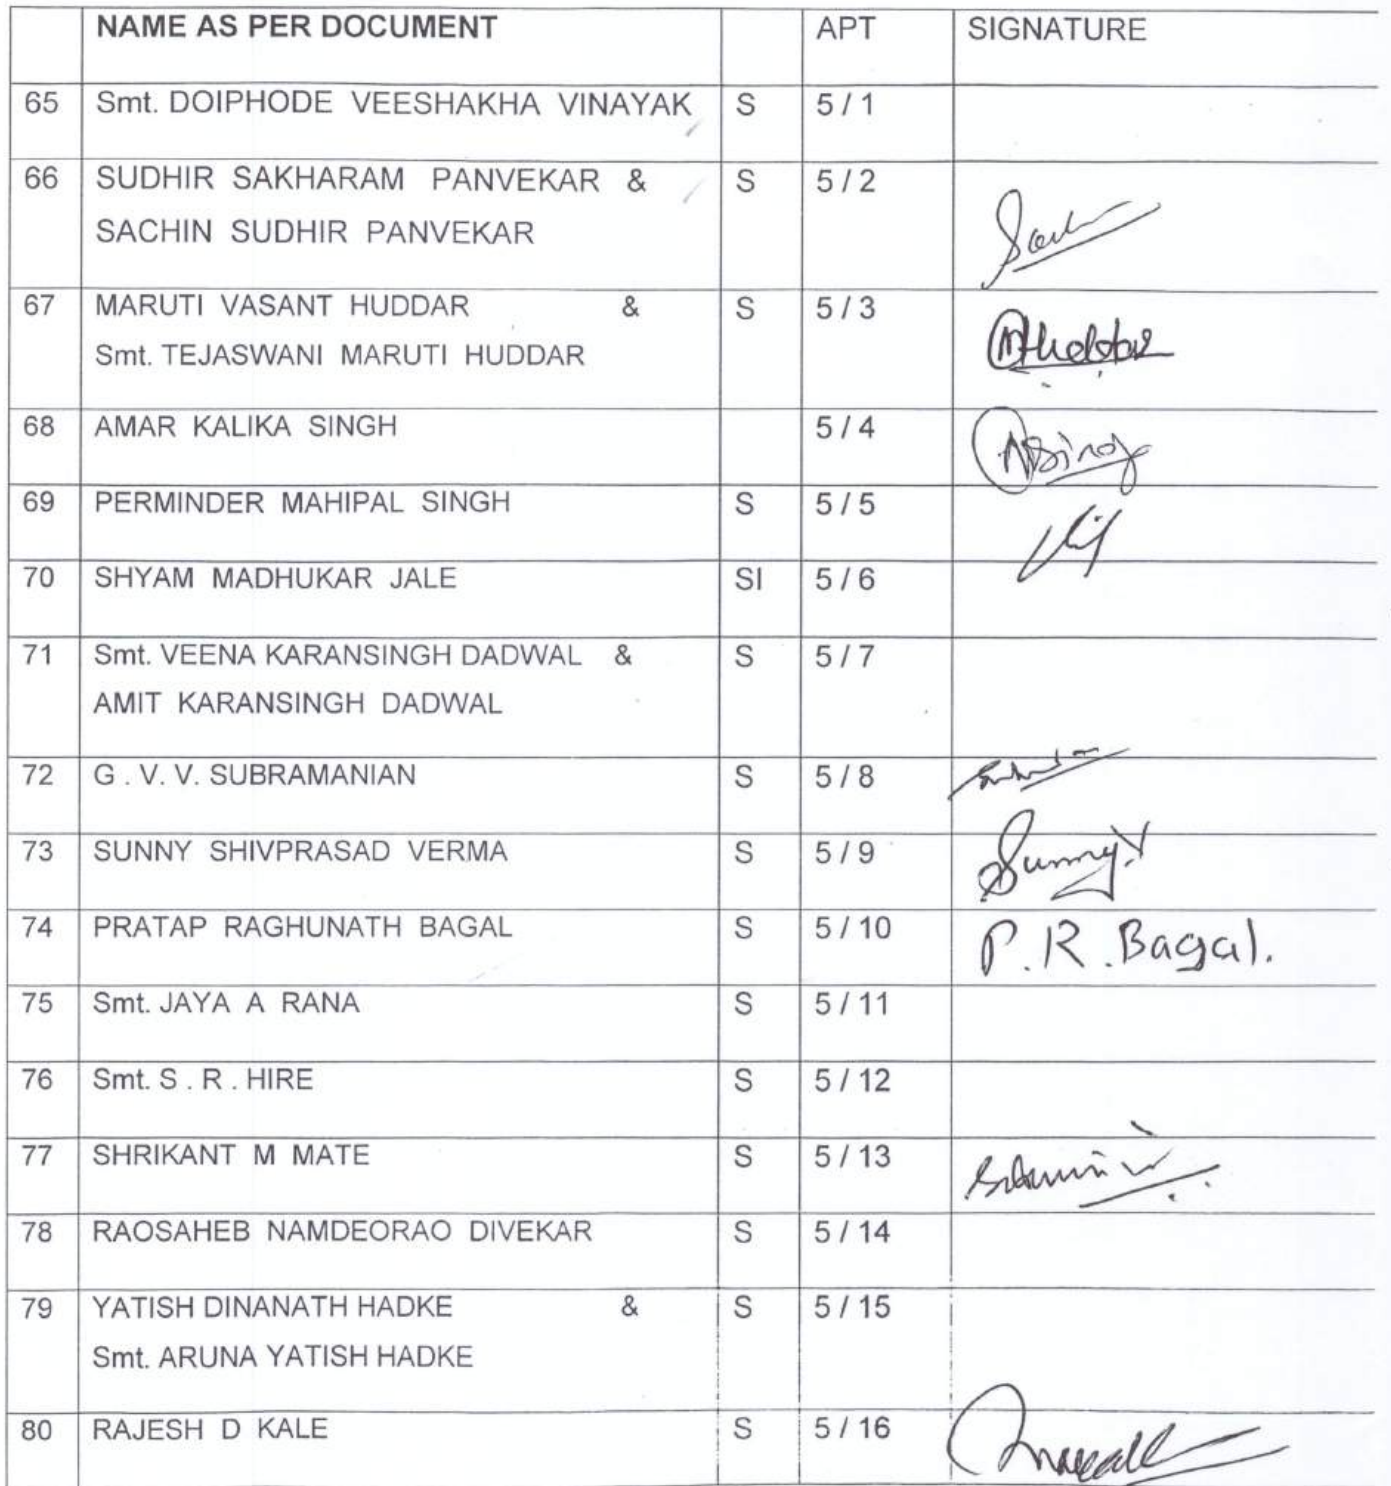 NAME AS PER DOCUMENT APT SIGNATURE
65 Smt. DOIPHODE VEESHAKHA VINAYAK S 5 / 1
66 SUDHIR SAKHARAM PANVEKAR & S 5 / 2
SACHIN SUDHIR PANVEKAR
67 MARUTI VASANT HUDDAR & S 5 / 3
Smt. TEJASWANI MARUTI HUDDAR
68 AMAR KALIKA SINGH 5 / 4
69 PERMINDER MAHIPAL SINGH S 5 / 5
70 SHYAM MADHUKAR JALE SI 5 / 6
71 Smt. VEENA KARANSINGH DADWAL & S 5 / 7
AMIT KARANSINGH DADWAL
72 G . V. V. SUBRAMANIAN S 5 / 8
73 SUNNY SHIVPRASAD VERMA S 5 / 9 Sunny.V
74 PRATAP RAGHUNATH BAGAL S 5 / 10 P.R.Bagal.
75 Smt. JAYA A RANA S 5 / 11
76 Smt. S . R . HIRE S 5 / 12
77 SHRIKANT M MATE S 5 / 13
78 RAOSAHEB NAMDEORAO DIVEKAR S 5 / 14
79 YATISH DINANATH HADKE & S 5 / 15
Smt. ARUNA YATISH HADKE
80 RAJESH D KALE S 5 / 16